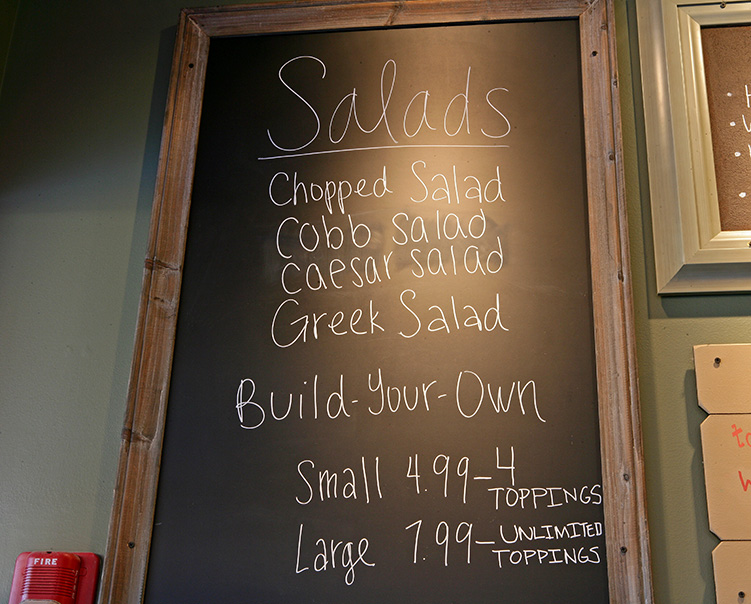 Salads
Chopped Salad
Cobb salad
Caesar salad
Greek Salad
Build-Your-Own
Small 4.99-4 TOPPINGS
Large 7.99-UNLIMITED TOPPINGS
FIRE